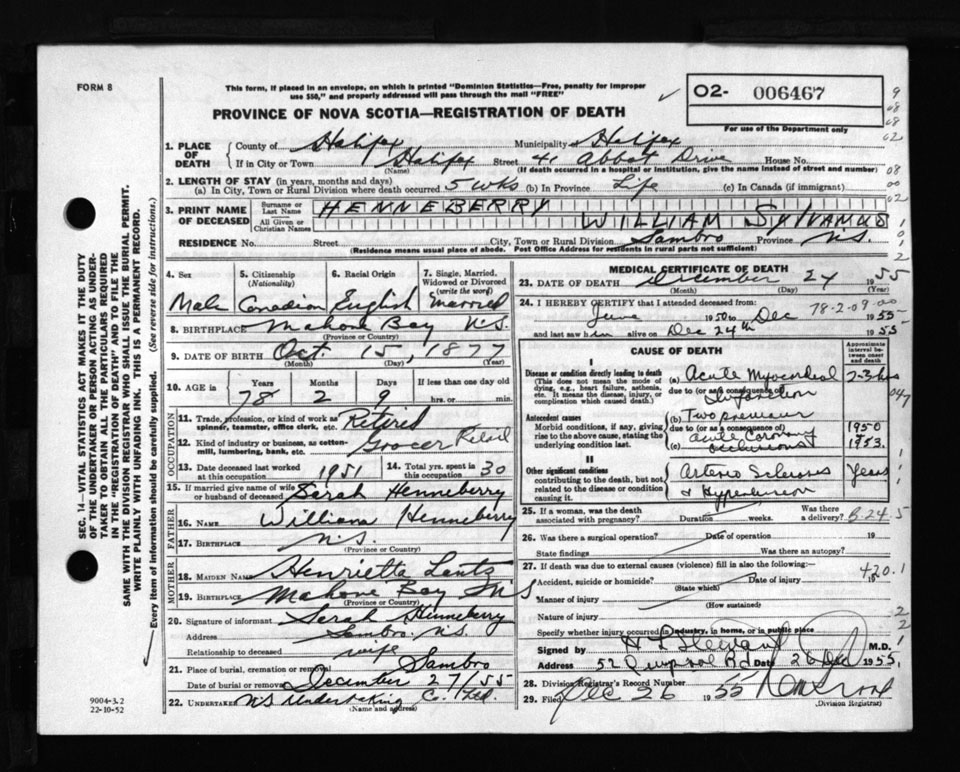 FORM 8
This form, if placed in an envelope, on which is printed "Dominion Statistics—Free, penalty for improper
use $50," and properly addressed will pass through the mail "FREE"
O2- 006467
For use of the Department only
PROVINCE OF NOVA SCOTIA—REGISTRATION OF DEATH
1. PLACE OF DEATH
County of Halifax Municipality Halifax
If in City or Town Halifax Street 41 Abbot Drive House No.
(Name) (If death occurred in a hospital or institution, give the name instead of street and number)
2. LENGTH OF STAY (in years, months and days)
(a) In City, Town or Rural Division where death occurred 5 wks (b) In Province Life (c) In Canada (if immigrant)
3. PRINT NAME OF DECEASED
Surname or Last Name HENNEBERRY
All Given or Christian Names WILLIAM SYLVANUS
RESIDENCE No. Street City, Town or Rural Division Sambro Province N.S.
(Residence means usual place of abode. Post Office Address for residents in rural parts not sufficient)
4. Sex
Male
5. Citizenship
(Nationality)
Canadian
6. Racial Origin
English
7. Single, Married,
Widowed or Divorced
(write the word)
Married
8. BIRTHPLACE Mahone Bay N.S.
(Province or Country)
9. DATE OF BIRTH Oct 15, 1877
(Month) (Day) (Year)
10. AGE in
Years Months Days If less than one day old
78 2 9 hrs. or min.
OCCUPATION
11. Trade, profession, or kind of work as
spinner, teamster, office clerk, etc. Retired
12. Kind of industry or business, as cotton-
mill, lumbering, bank, etc. Grocer Retail
13. Date deceased last worked
at this occupation 1951
14. Total yrs. spent in
this occupation 30
15. If married give name of wife
or husband of deceased Sarah Henneberry
FATHER
16. NAME William Henneberry
17. BIRTHPLACE N.S.
(Province or Country)
MOTHER
18. MAIDEN NAME Henrietta Lantz
19. BIRTHPLACE Mahone Bay N S
(Province or Country)
20. Signature of informant Sarah Henneberry
Address Sambro N.S.
Relationship to deceased wife
21. Place of burial, cremation or removal Sambro
Date of burial or removal December 27/55
22. UNDERTAKER N S Undertaking C.
(Name and address)
MEDICAL CERTIFICATE OF DEATH
23. DATE OF DEATH December 24 1955
(Month) (Day) (Year)
24. I HEREBY CERTIFY that I attended deceased from:
78-2-09-00
June 1950 to Dec 1955
and last saw him alive on Dec 24th 1955
CAUSE OF DEATH
Approximate
interval be-
tween onset
and death
I
Disease or condition directly leading to death
(This does not mean the mode of
dying, e.g., heart failure, asthenia,
etc. It means the disease, injury, or
complication which caused death.)
(a) Acute Myocardial
due to (or as a consequence of)
Infarction
2-3 hrs
Antecedent causes
Morbid conditions, if any, giving
rise to the above cause, stating the
underlying condition last.
(b) Two previous
due to (or as a consequence of)
acute Coronary
(c) occlusions
1950
1953.
II
Other significant conditions
contributing to the death, but not
related to the disease or condition
causing it.
Arterio Sclerosis
& Hypertension
Years
25. If a woman, was the death
associated with pregnancy? Duration weeks. Was there
a delivery?
B-24-5
26. Was there a surgical operation? Date of operation 19
State findings Was there an autopsy?
27. If death was due to external causes (violence) fill in also the following:
Accident, suicide or homicide? Date of injury 19
(State which)
420.1
Manner of injury
(How sustained)
Nature of injury
Specify whether injury occurred in industry, in home, or in public place
Signed by H L Stewart M.D.
Address 52 Date 26 Dec 1955
28. Division Registrar's Record Number
29. Filed Dec 26 1955
(Division Registrar)
SEC. 14—VITAL STATISTICS ACT MAKES IT THE DUTY
OF THE UNDERTAKER OR PERSON ACTING AS UNDER-
TAKER TO OBTAIN ALL THE PARTICULARS REQUIRED
IN THE "REGISTRATION OF DEATH" AND TO FILE THE
SAME WITH THE DIVISION REGISTRAR WHO SHALL ISSUE THE BURIAL PERMIT.
WRITE PLAINLY WITH UNFADING INK. THIS IS A PERMANENT RECORD.
Every item of information should be carefully supplied. (See reverse side for instructions.)
9004-3.2
22-10-52